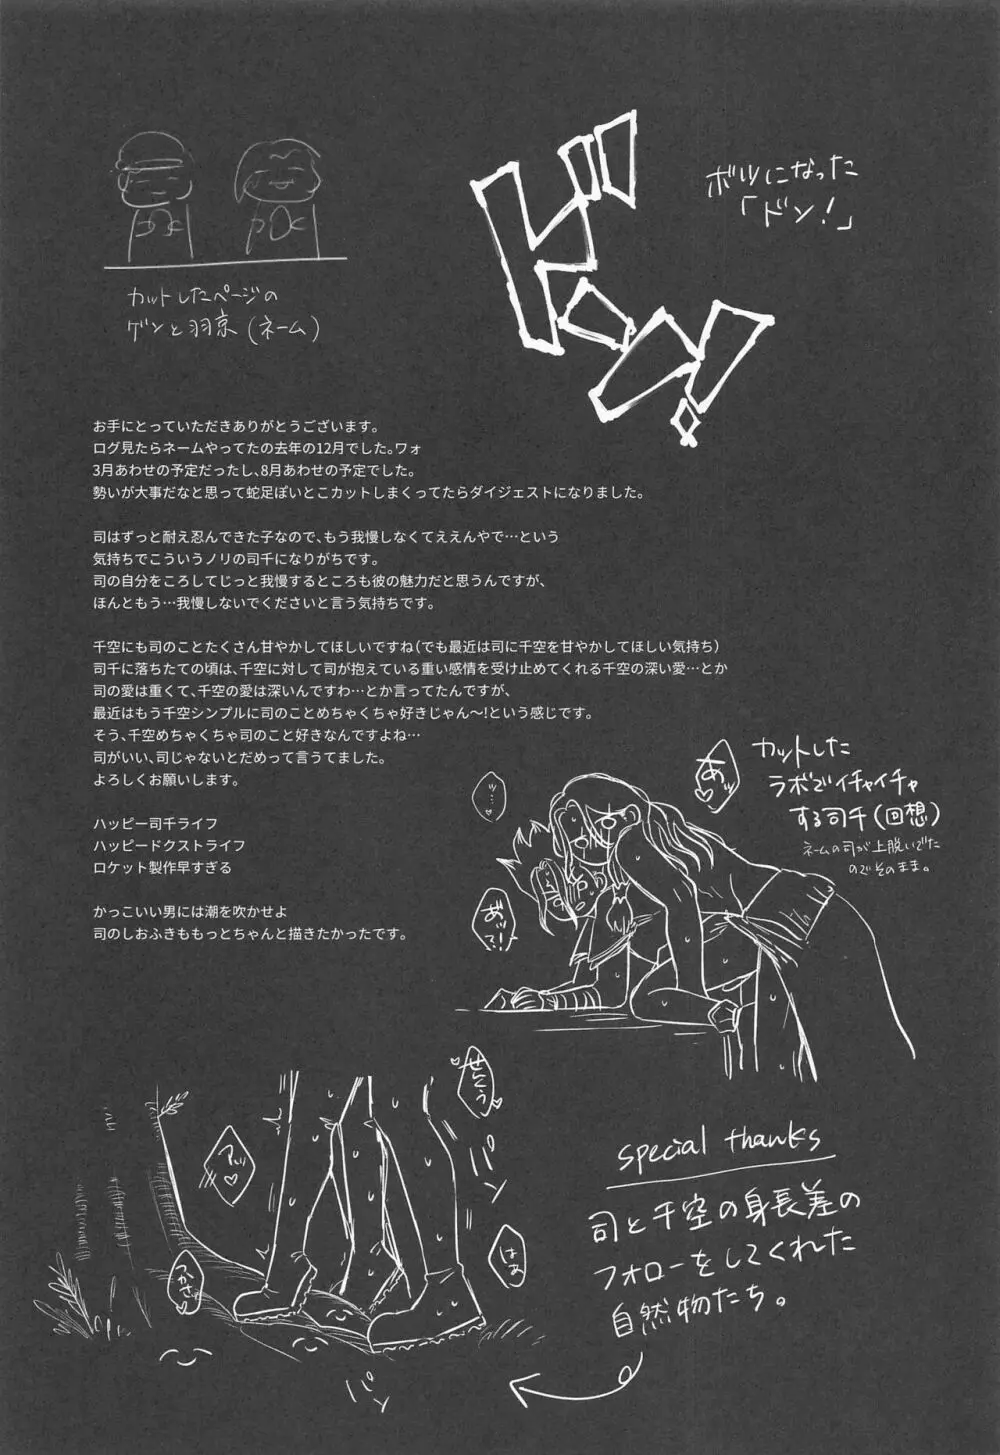 ボツになった
「ドン!」
ドン!
カットしたページの
ゲンと羽京(ネーム)
お手にとっていただきありがとうございます。
ログ見たらネームやってたの去年の12月でした。ワォ
3月あわせの予定だったし、8月あわせの予定でした。
勢いが大事だなと思って蛇足ぽいとこカットしまくってたらダイジェストになりました。
司はずっと耐え忍んできた子なので、もう我慢しなくてええんやで…という
気持ちでこういうノリの司千になりがちです。
司の自分をころしてじっと我慢するところも彼の魅力だと思うんですが、
ほんともう…我慢しないでくださいと言う気持ちです。
千空にも司のことたくさん甘やかしてほしいですね(でも最近は司に千空を甘やかしてほしい気持ち)
司千に落ちたての頃は、千空に対して司が抱えている重い感情を受け止めてくれる千空の深い愛…とか
司の愛は重くて、千空の愛は深いんですわ…とか言ってたんですが、
最近はもう千空シンプルに司のことめちゃくちゃ好きじゃん〜!という感じです。
そう、千空めちゃくちゃ司のこと好きなんですよね…
司がいい、司じゃないとだめって言うてました。
よろしくお願いします。
ハッピー司千ライフ
ハッピードクストライフ
ロケット製作早すぎる
かっこいい男には潮を吹かせよ
司のしおふきももっとちゃんと描きたかったです。
カットした
ラボでイチャイチャ
する司千(回想)
ネームの司が上脱いでた
のでそのまま。
あッ♡
ッ…♡
あ"ッて!
せんくう
パン
アッ♡
はあ
つかさ♡
パン
special thanks
司と千空の身長差の
フォローをしてくれた
自然物たち。